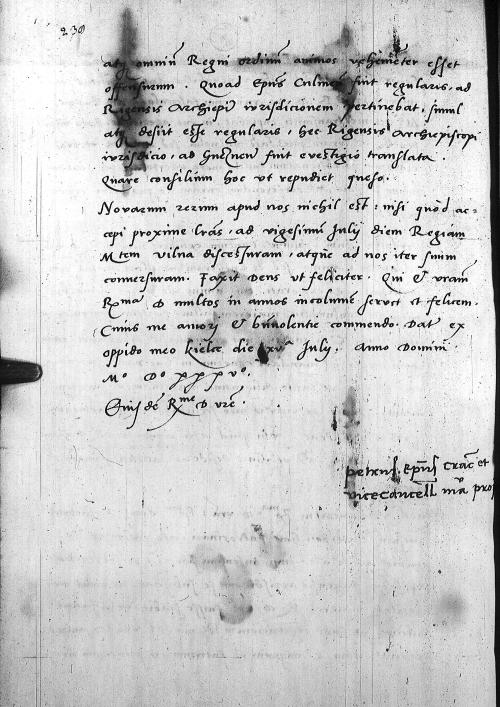 230
atq omniu Regni ordinu animos vehemeter esset
offensurum. Quoad Epus Culmen fuit regularis, ad
Rigensis Archiepi iurisdicionem pertinebat, simul
atq desiit esse regularis, hec Rigensis Archiepiscopi
iurisdicio, ad Gneznen fuit evestigio translata.
Quare consilium hoc ut repudiet queso.
Novarum rerum apud nos nichil est: nisi quod ac=
cepi proxime lras, ad vigesimum Iulij diem Regiam
Mtem vilna discessuram, atque ad nos iter suum
conversuram. Faxit Deus ut feliciter. Qui & vram
Rma D multos in annos incolume servet et felicem.
Cuius me amori & bnvolentie commendo. Dat ex
oppido meo kielce die xva July. Anno Domini
Mo Do xxxvo.
Eiusde Rme D vre.
petrus. Epus Crac et
vicecancell ma prop